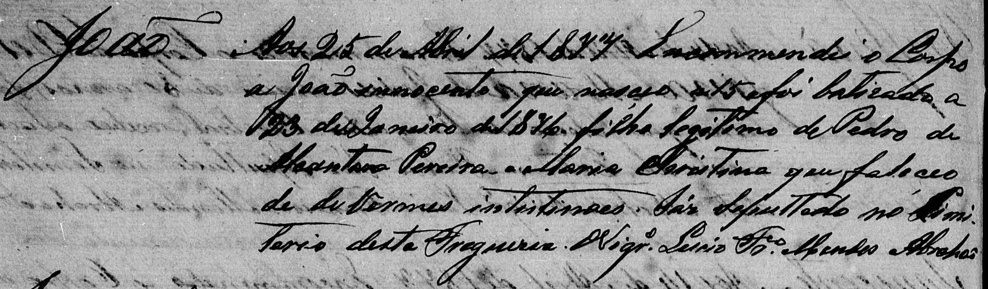 João Aos 25 de Abril de 1877 Encommendei o Corpo
a João innocente que nasceo a 15 e foi batizado a
23 de Janeiro de 1876 filho legitimo de Pedro de
Alcantara Pereira e Maria Christina que faleceo
de de Vermes intistinaes. Foi Sepultado no Simi
terio desta Freguezia. O Vigrº. Lucio Frcº. Mendes Abrahão